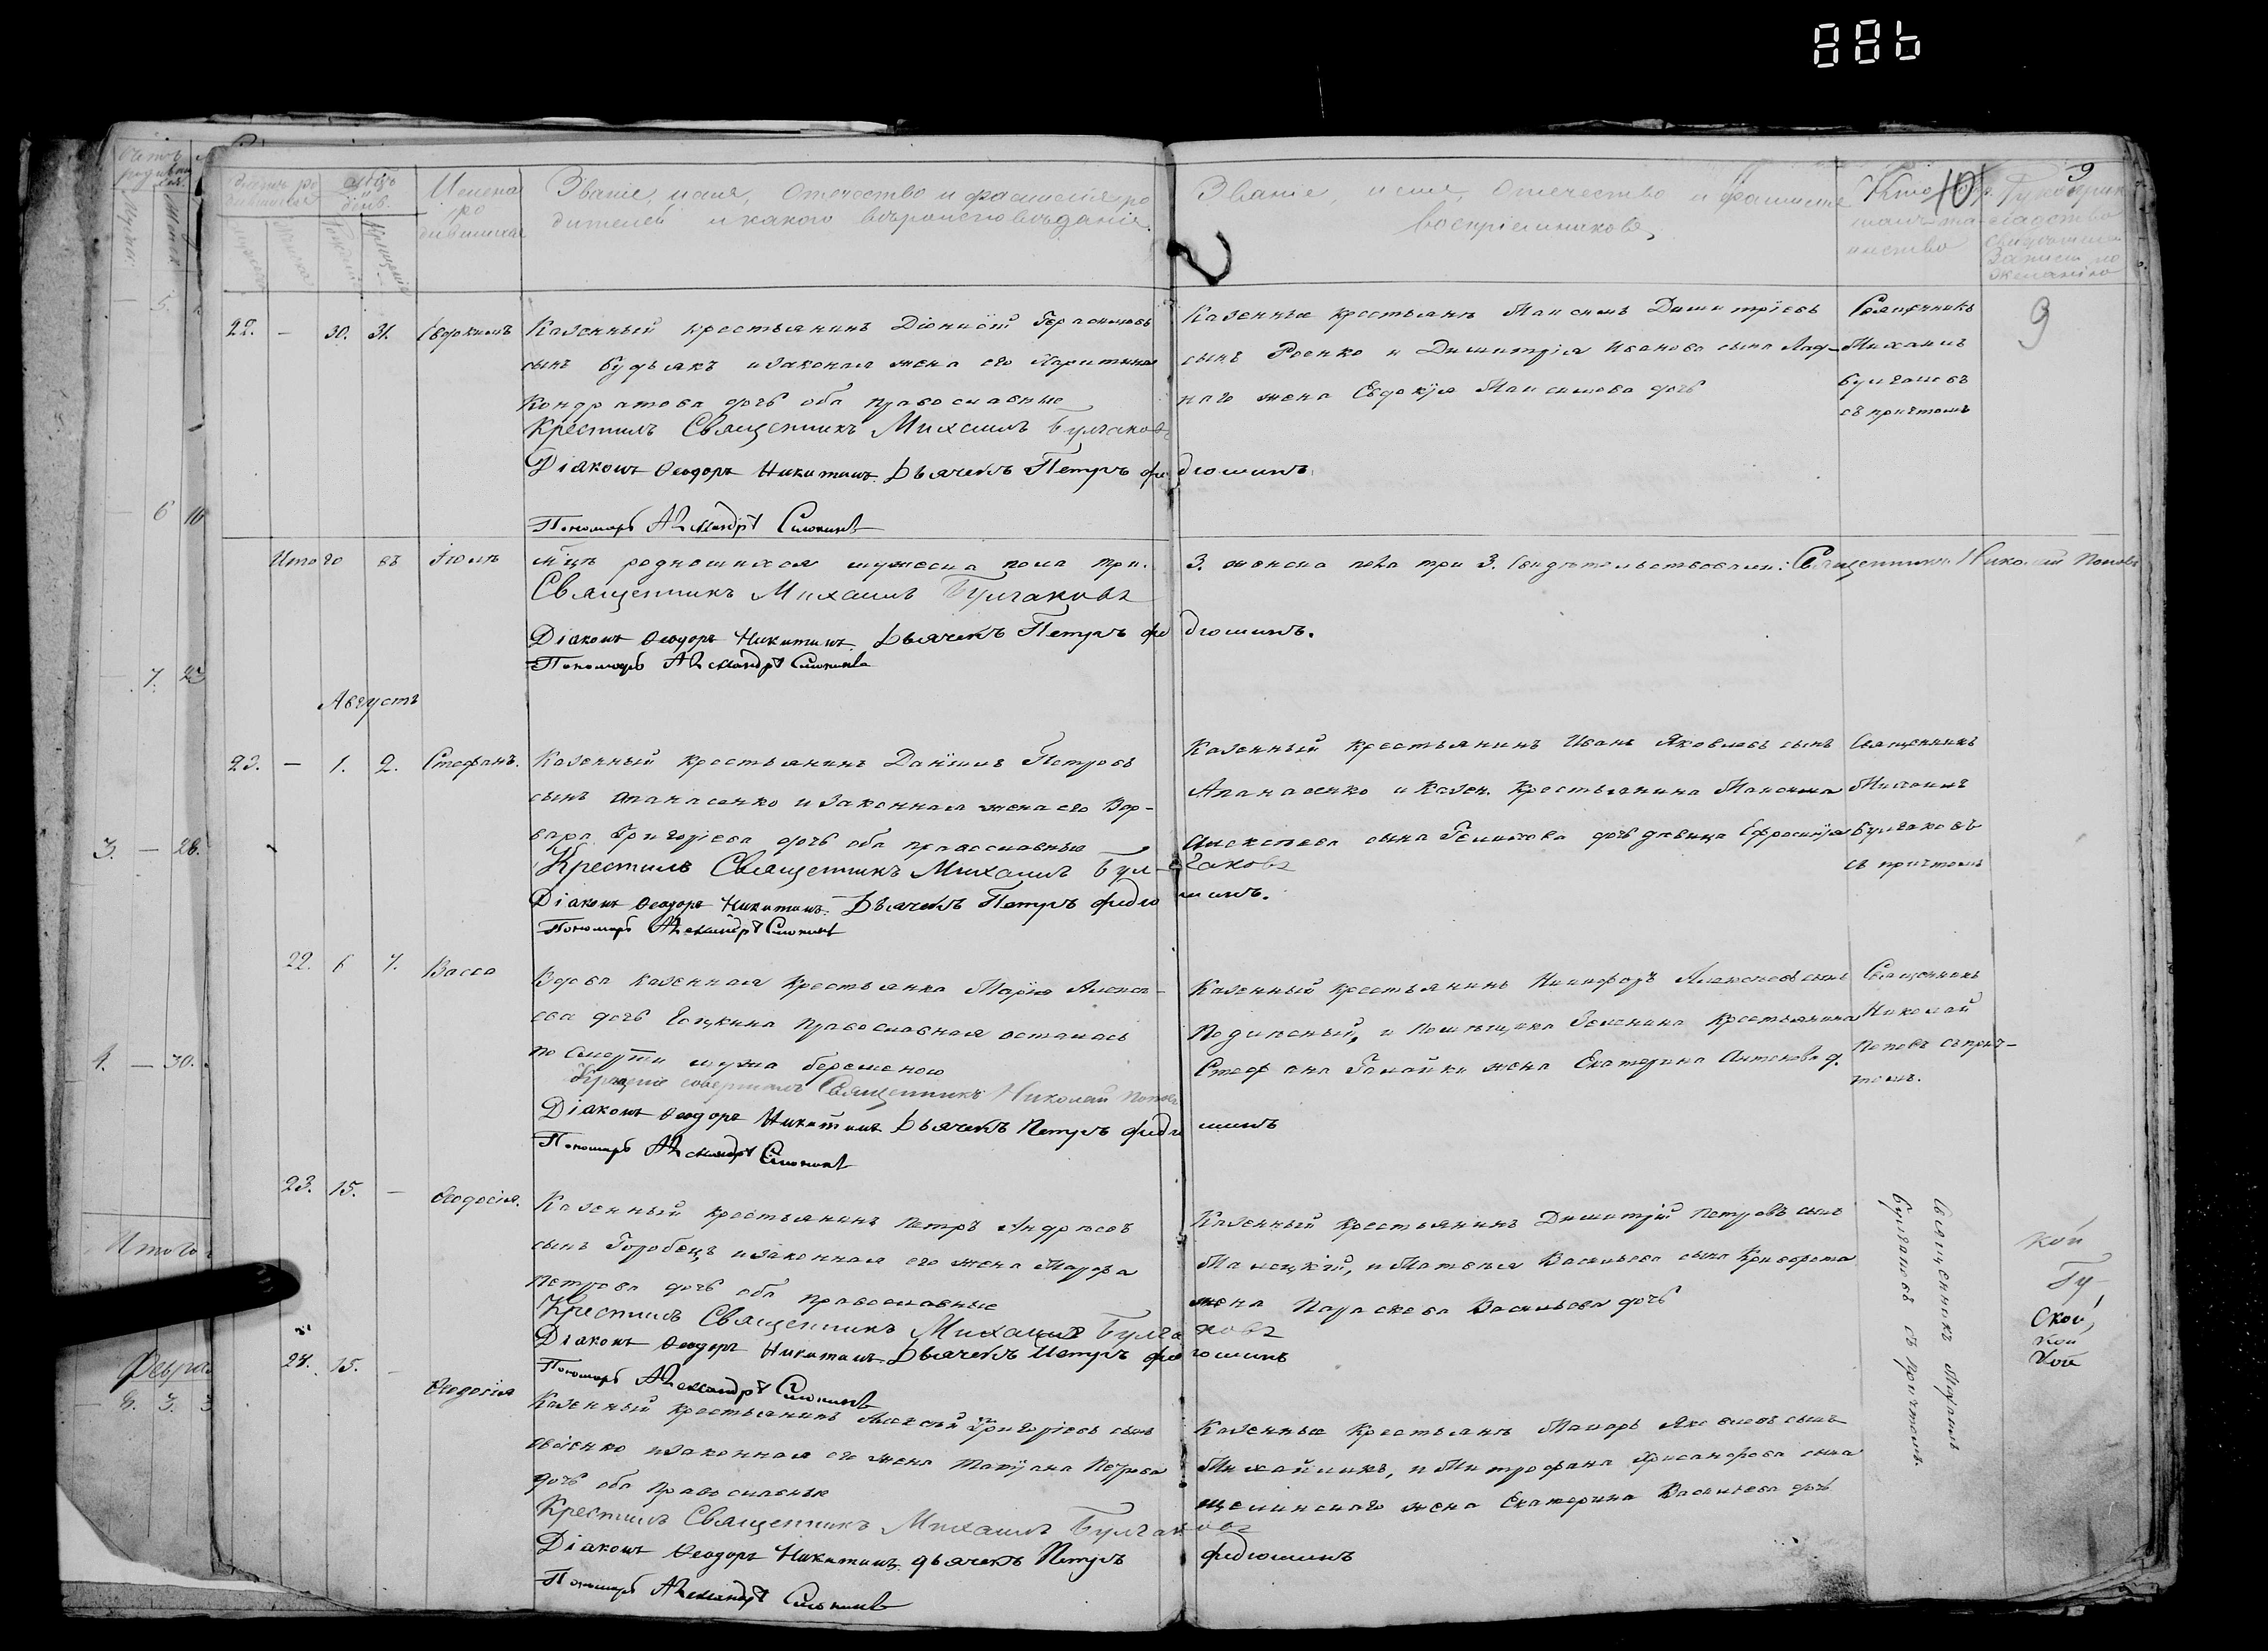 886
9
10
Счетъ родившихся
Мѣсяцъ и день
Имена родившихся
Званіе, имя, отечество и фамилія родителей и какого вѣроисповѣданія.
Званіе, имя, отечество и фамилія воспріемниковъ.
Кто таинство
22. — 30. 31. Евдокимъ
Казенный крестьянинъ Діонисій Герасимовъ
сынъ Будьякъ и законная жена его
Кондратова дочь оба православные
Крестилъ Священникъ Михаилъ Булгаковъ
Діаконъ Ѳеодоръ Никитинъ Дьячекъ Петръ Федюшинъ.
Пономарь Александръ
Казенные крестьяне Максимъ Димитріевъ
сынъ Роенко и Димитрія Иванова сына Лад-
наго жена Евдокія Максимова дочь
Священникъ
Михаилъ
Булгаковъ
съ причтомъ
9
Итого въ Іюлѣ м-цѣ родившихся мужеска пола три.
3. женска пола три 3. Свидѣтельствовали: Священникъ Николай Поповъ
Священникъ Михаилъ Булгаковъ
Діаконъ Ѳеодоръ Никитинъ. Дьячекъ Петръ Федюшинъ.
Пономарь Александръ
Августъ
23. — 1. 2. Стефанъ.
Казенный крестьянинъ Даніилъ Петровъ
сынъ Апанасенко и законная жена его Вар-
вара Григоріева дочь оба православные
Крестилъ Священникъ Михаилъ Бул-гаковъ
Діаконъ Ѳеодоръ Никитинъ. Дьячекъ Петръ Федюшинъ.
Пономарь Александръ
Казенный крестьянинъ Иванъ Яковлевъ сынъ
Апанасенко и казен. крестьянина Максима
Алексѣева сына дочь дѣвица Ефросинія
Священникъ
Михаилъ
Булгаковъ
съ причтомъ
22. 6 7. Васса
Вдова казенная крестьянка Марія Алексѣ-
ева дочь православная осталась
по смерти мужа беременою
совершилъ Священникъ Николай Поповъ
Діаконъ Ѳеодоръ Никитинъ Дьячекъ Петръ Федюшинъ
Пономарь Александръ
Казенный крестьянинъ Никифоръ Алексѣевъ сынъ
и помѣщика крестьянина
Стефана жена Екатерина Антонова д.
Священникъ
Николай
Поповъ съ прич-
томъ.
23. 15. — Ѳеодосія.
Казенный крестьянинъ Петръ Андреевъ
сынъ Горобецъ и законная его жена Марфа
Петрова дочь оба православные
Крестилъ Священникъ Михаилъ Булгаковъ
Діаконъ Ѳеодоръ Никитинъ Дьячекъ Петръ Федюшинъ
Пономарь Александръ
Казенный крестьянинъ Димитрій Петровъ сынъ
и Матвѣя Васильева сына
жена Параскева Васильева дочь
Священникъ Михаилъ
Булгаковъ съ причтомъ.
кой
Гу
Ской,
кой
кой
24. 15. — Ѳеодосія
Казенный крестьянинъ Алексѣй Григоріевъ сынъ
и законная его жена Татіана Петрова
дочь оба православные
Крестилъ Священникъ Михаилъ Булгаковъ
Діаконъ Ѳеодоръ Никитинъ дьячекъ Петръ Федюшинъ
Пономарь Александръ
Казенные крестьяне Макаръ Яковлевъ сынъ
Михайликъ, и Митрофана Хрисанфова сына
жена Екатерина Васильева дочь